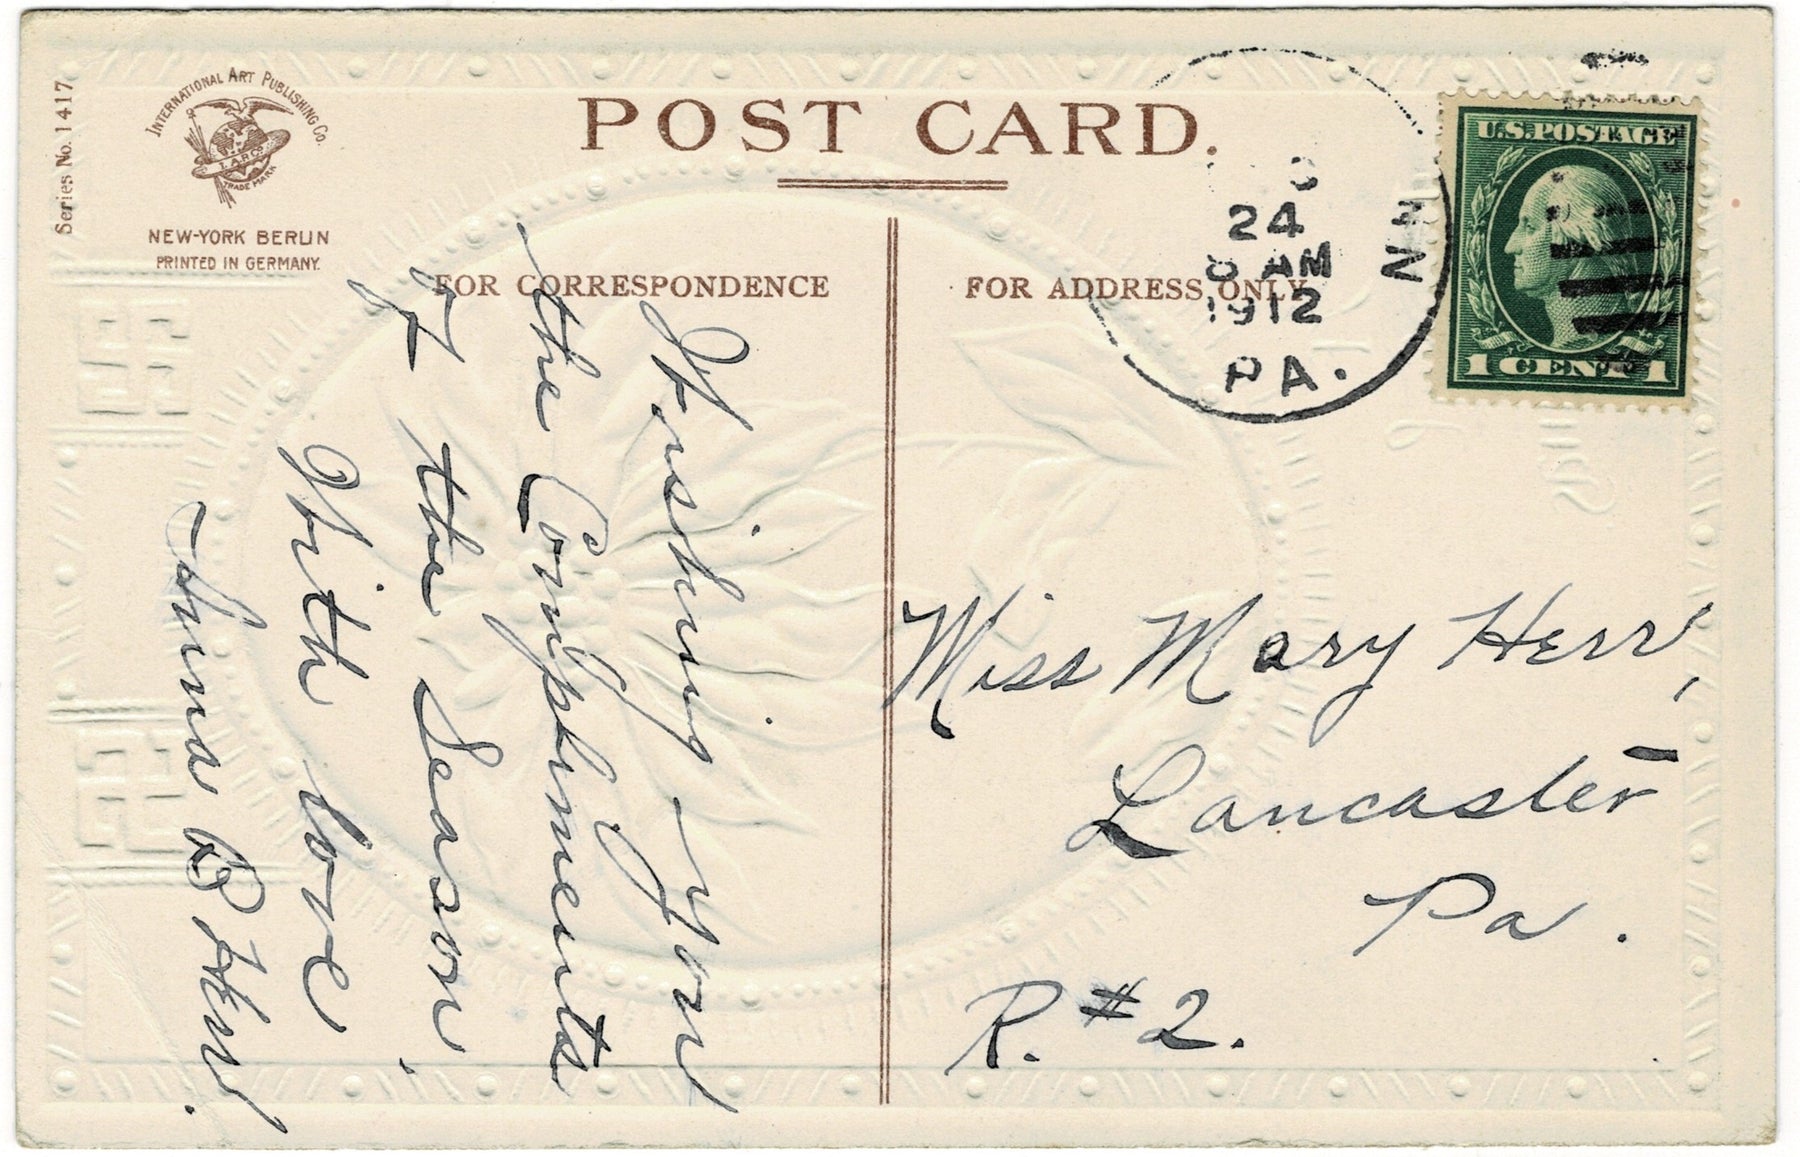 Series No. 1417
INTERNATIONAL ART PUBLISHING CO.
I.A.P.CO.
TRADE MARK
NEW-YORK BERLIN
PRINTED IN GERMANY.
POST CARD.
FOR CORRESPONDENCE
FOR ADDRESS ONLY
24
AM
1912
PA.
U.S.POSTAGE
1 CENT 1
Wishing you
the Compliments
of the Season.
With love
B Herr.
Miss Mary Herr,
Lancaster
Pa.
R. #2.